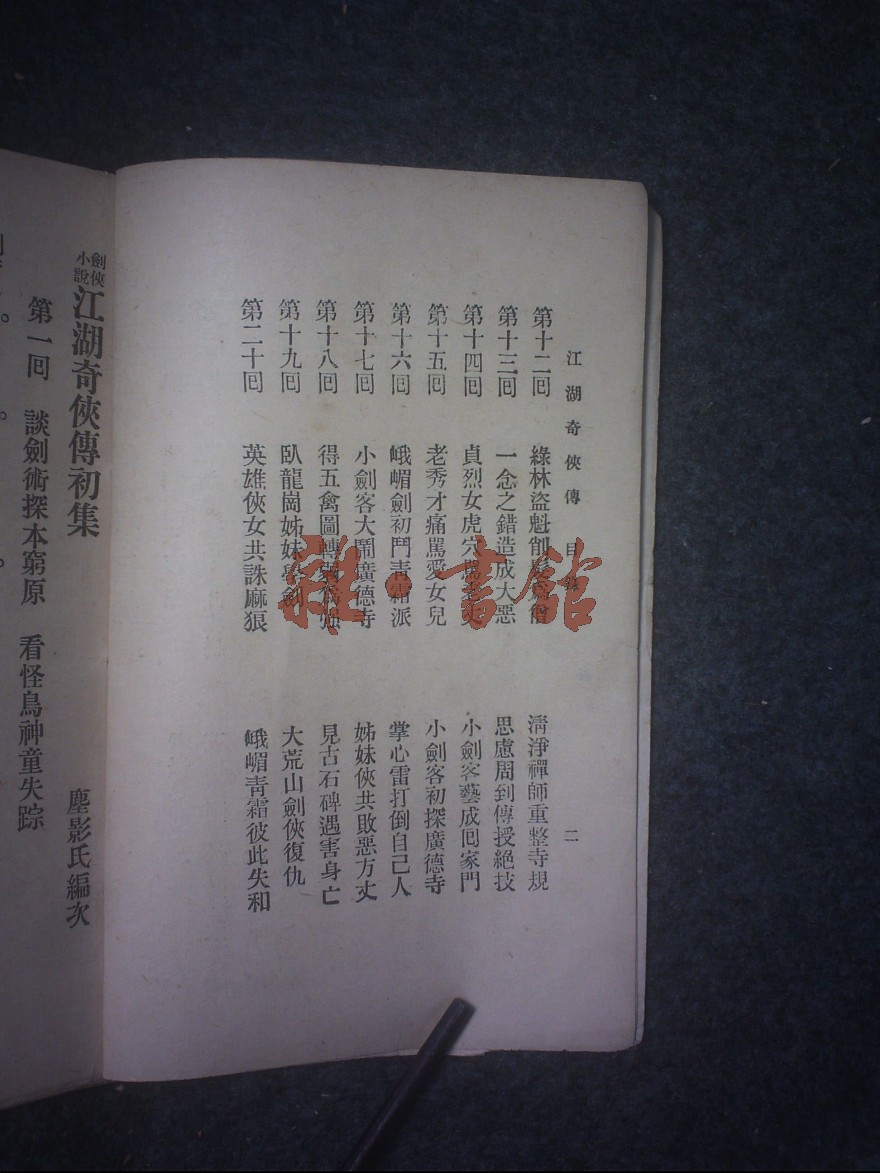 江湖奇俠傳 目錄 二
第十二回 綠林盜魁削髮為僧 清淨禪師重整寺規
第十三回 一念之錯造成大惡 思慮周到傳授絕技
第十四回 貞烈女虎穴罵老丈 小劍客藝成回家門
第十五回 老秀才痛罵愛女兒 小劍客初探廣德寺
第十六回 峨嵋劍初鬥青霜派 掌心雷打倒自己人
第十七回 小劍客大鬧廣德寺 姊妹俠共敗惡方丈
第十八回 得五禽圖轉弱為強 見古石碑遇害身亡
第十九回 臥龍崗姊妹學劍 大荒山劍俠復仇
第二十回 英雄俠女共誅麻狼 峨嵋青霜彼此失和
劍俠小說 江湖奇俠傳初集
塵影氏編次
第一回 談劍術探本窮原 看怪鳥神童失踪
雜·書館